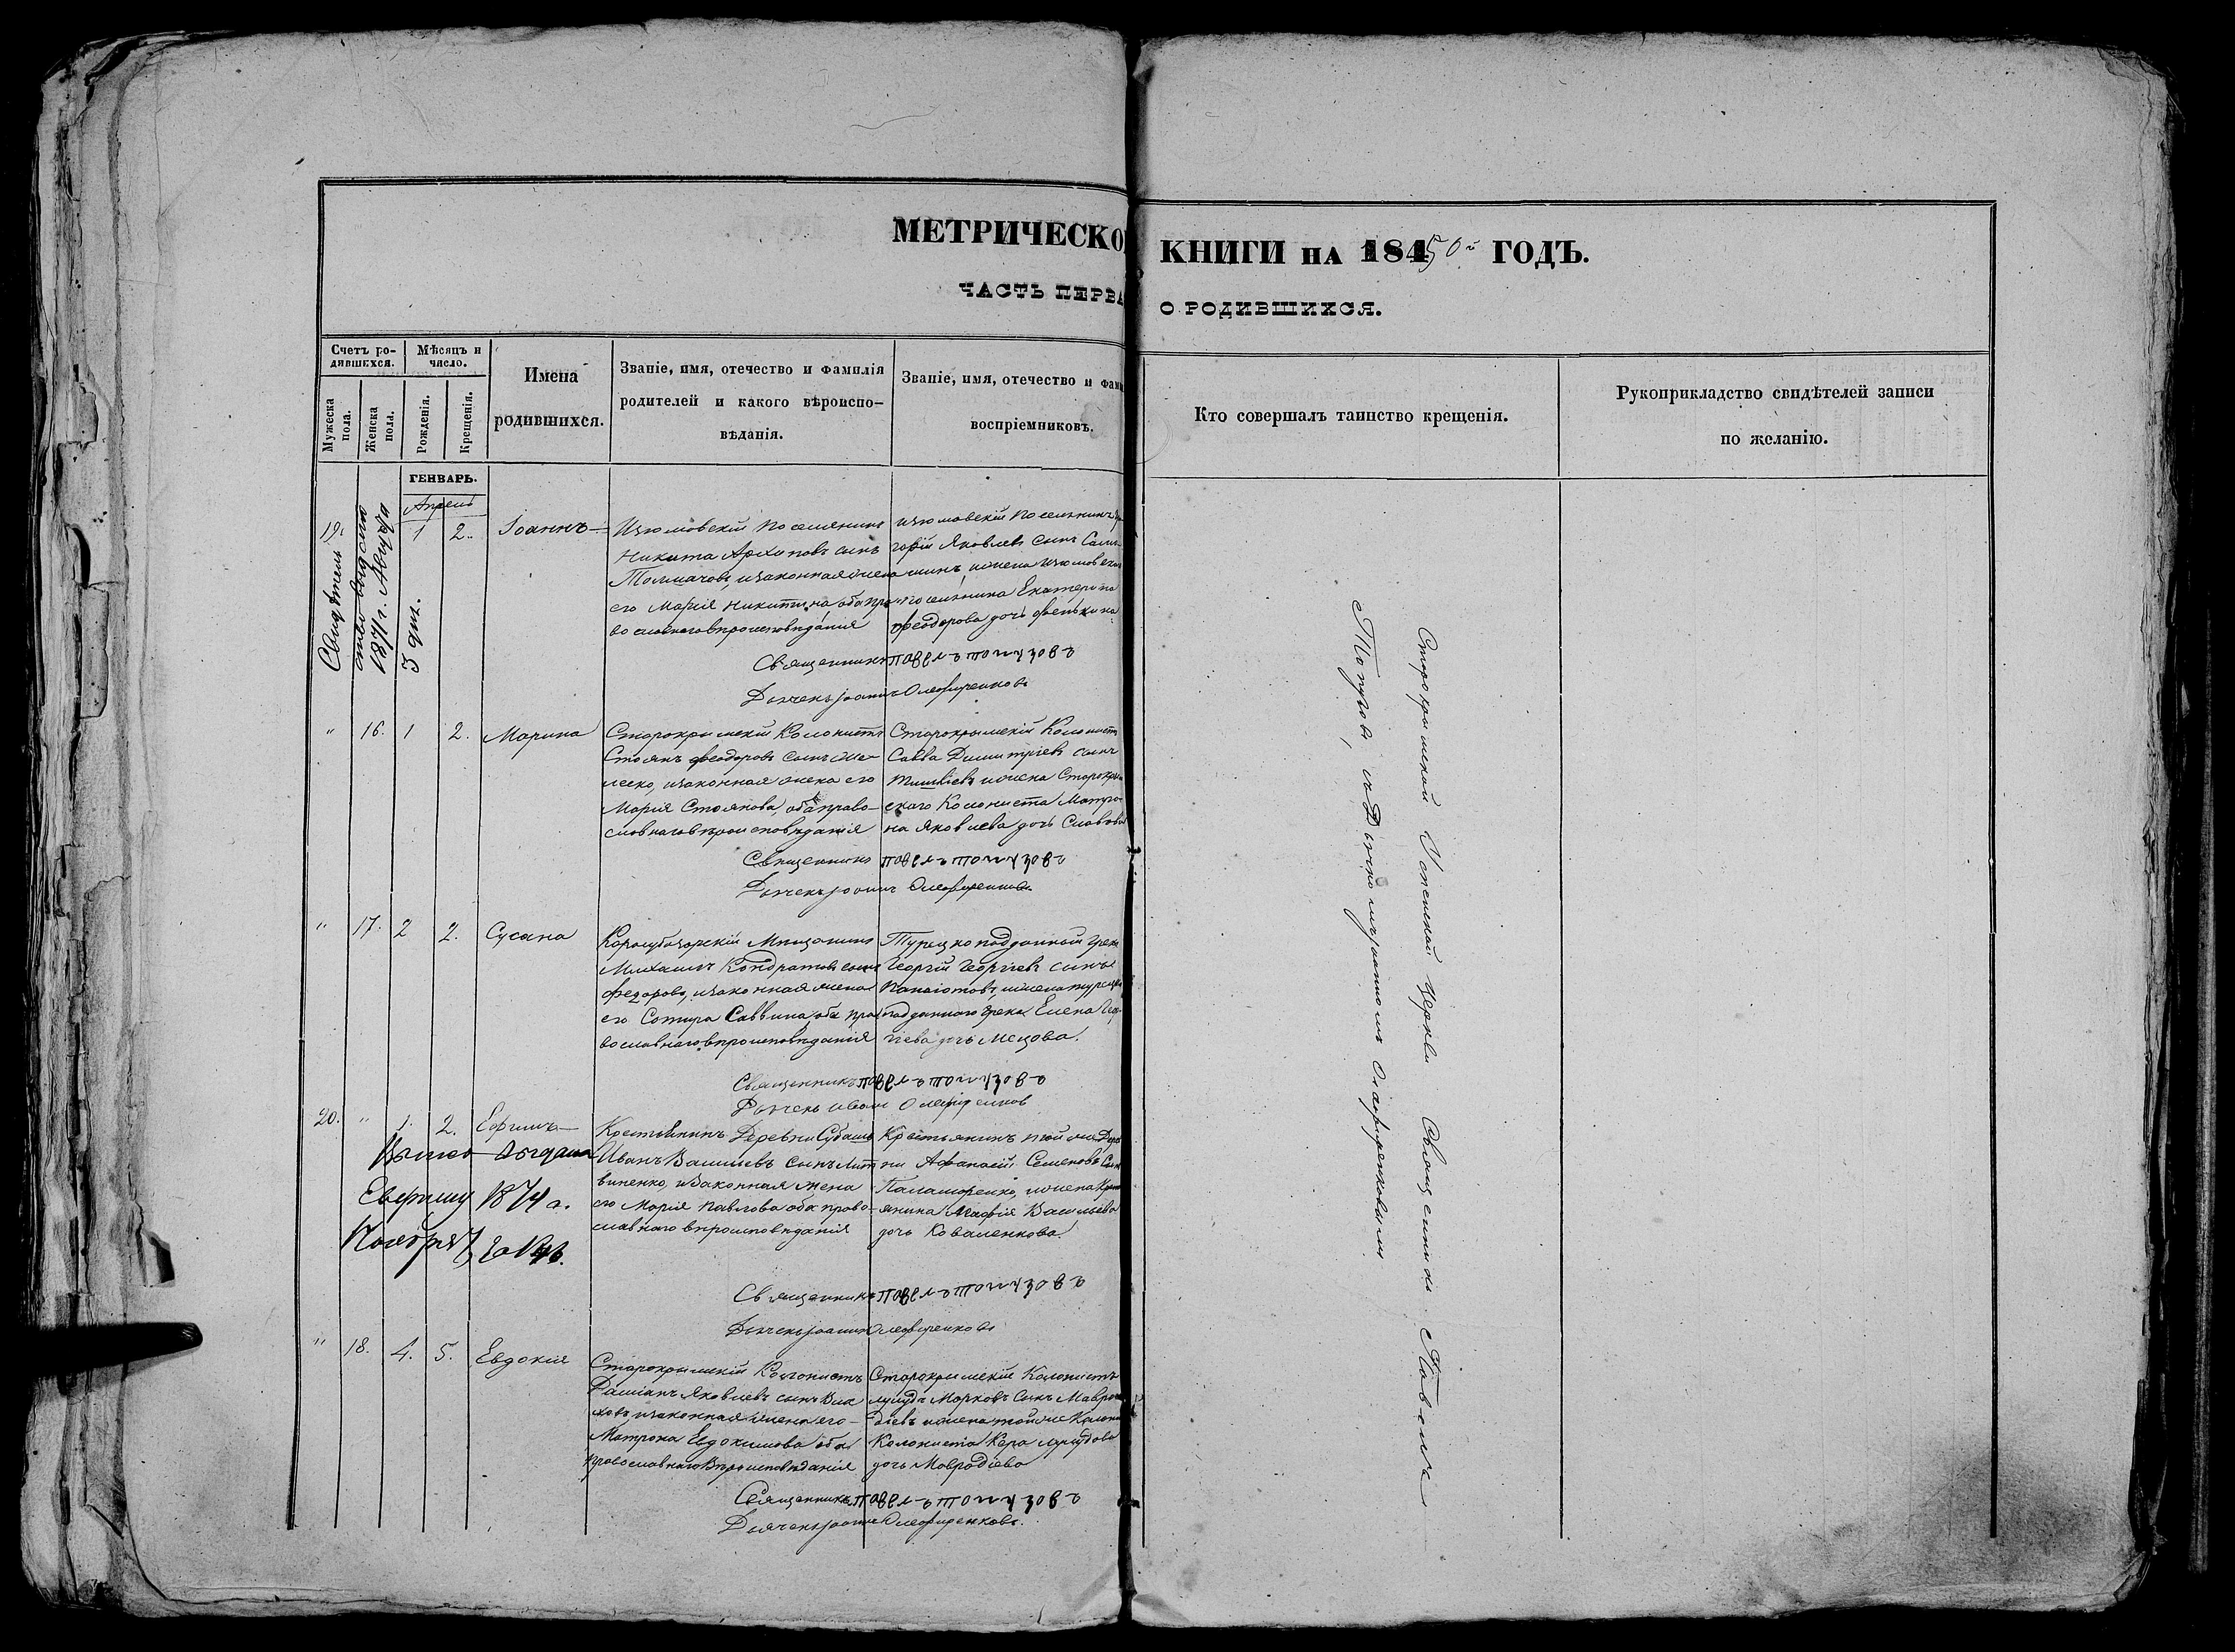 МЕТРИЧЕСКО КНИГИ НА 18450й ГОДЪ.
ЧАСТЬ ПЕРВА О РОДИВШИХСЯ.
Счетъ ро-
дившихся.
Мужеска
пола.
Женска
пола.
Мѣсяцъ и
число.
Рожденія.
Крещенія.
Имена
родившихся.
Званіе, имя, отечество и фамилія
родителей и какого вѣроиспо-
вѣданія.
Званіе, имя, отечество и фами
воспріемниковъ.
Кто совершалъ таинство крещенія.
Рукоприкладство свидѣтелей записи
по желанію.
ГЕНВАРЬ.
Апрель
19. 1 2. Іоаннъ
Свидѣтель
ство выдано
1871 г. Авгус
5 дня.
Изюмовскій поселянинъ
Никита Архиповъ сынъ
Толмачовъ, и законная жена
его Марія Никитина, оба пра
вославнаго вѣроисповѣданія
Изюмовскій поселянинъ
горій Яковлевъ сынъ
и жена Изюмовска
поселянина Екатерина
Феодорова дочь
Священникъ Павелъ Топузовъ
Дьячекъ Іоаннъ Олефиренковъ
" 16. 1 2. Марина
Старокрымскій Колонистъ
Стоянъ Феодоровъ сынъ Же
леско, и законная жена его
Марія Стоянова, оба право-
славнаго вѣроисповѣданія
Старокрымскій Колонистъ
Савва Димитріевъ сынъ
и жена Старокры
скаго Колониста Матро
на Яковлева дочь
Священникъ Павелъ Топузовъ
Дьячекъ Іоаннъ Олефиренковъ.
" 17. 2 2. Сусана
Карасубазарскій Мѣщанинъ
Михаилъ Кондратовъ сынъ
Федоровъ, и законная жена
его Сотира Саввина, оба пра
вославнаго вѣроисповѣданія
Турецко подданный Грекъ
Георгій Георгіевъ сынъ
Панаіотовъ, и жена турецко
подданнаго Грека Елена Геор-
гіева дочь Мецова.
Священникъ Павелъ Топузовъ
Дьячекъ Иванъ Олефиренков
20. " 1. 2. Ефимъ
1874 г.
Крестьянинъ Деревни Субашъ
Иванъ Василіевъ сынъ Лит
виненко, и законная жена
его Марія Павлова оба право-
славнаго вѣроисповѣданія
Крестьянинъ той же Дерев
ни Афанасій Семеновъ сын
Паламаренко, и жена Крест
янина Агафія Васильева
дочь Коваленкова.
Священникъ Павелъ Топузовъ
Дьячекъ Іоаннъ Олефиренковъ
" 18. 4. 5. Евдокія
Старокрымскій Колонистъ
Даміанъ Яковлевъ сынъ Вла
ховъ и законная жена его-
Матрона Евдокимова оба
православнаго Вѣроисповѣданія
Старокрымскій Колонистъ
Марковъ сынъ Мавро
діевъ и жена той же Колони
Колониста Кера
дочь Мавродіева
Священникъ Павелъ Топузовъ
Дьячекъ Іоаннъ Олефиренковъ.
Старокрымской Успенской Церкви Священникъ Павелъ
Топузовъ, и Дьячкомъ Іоанномъ Олефиренковымъ